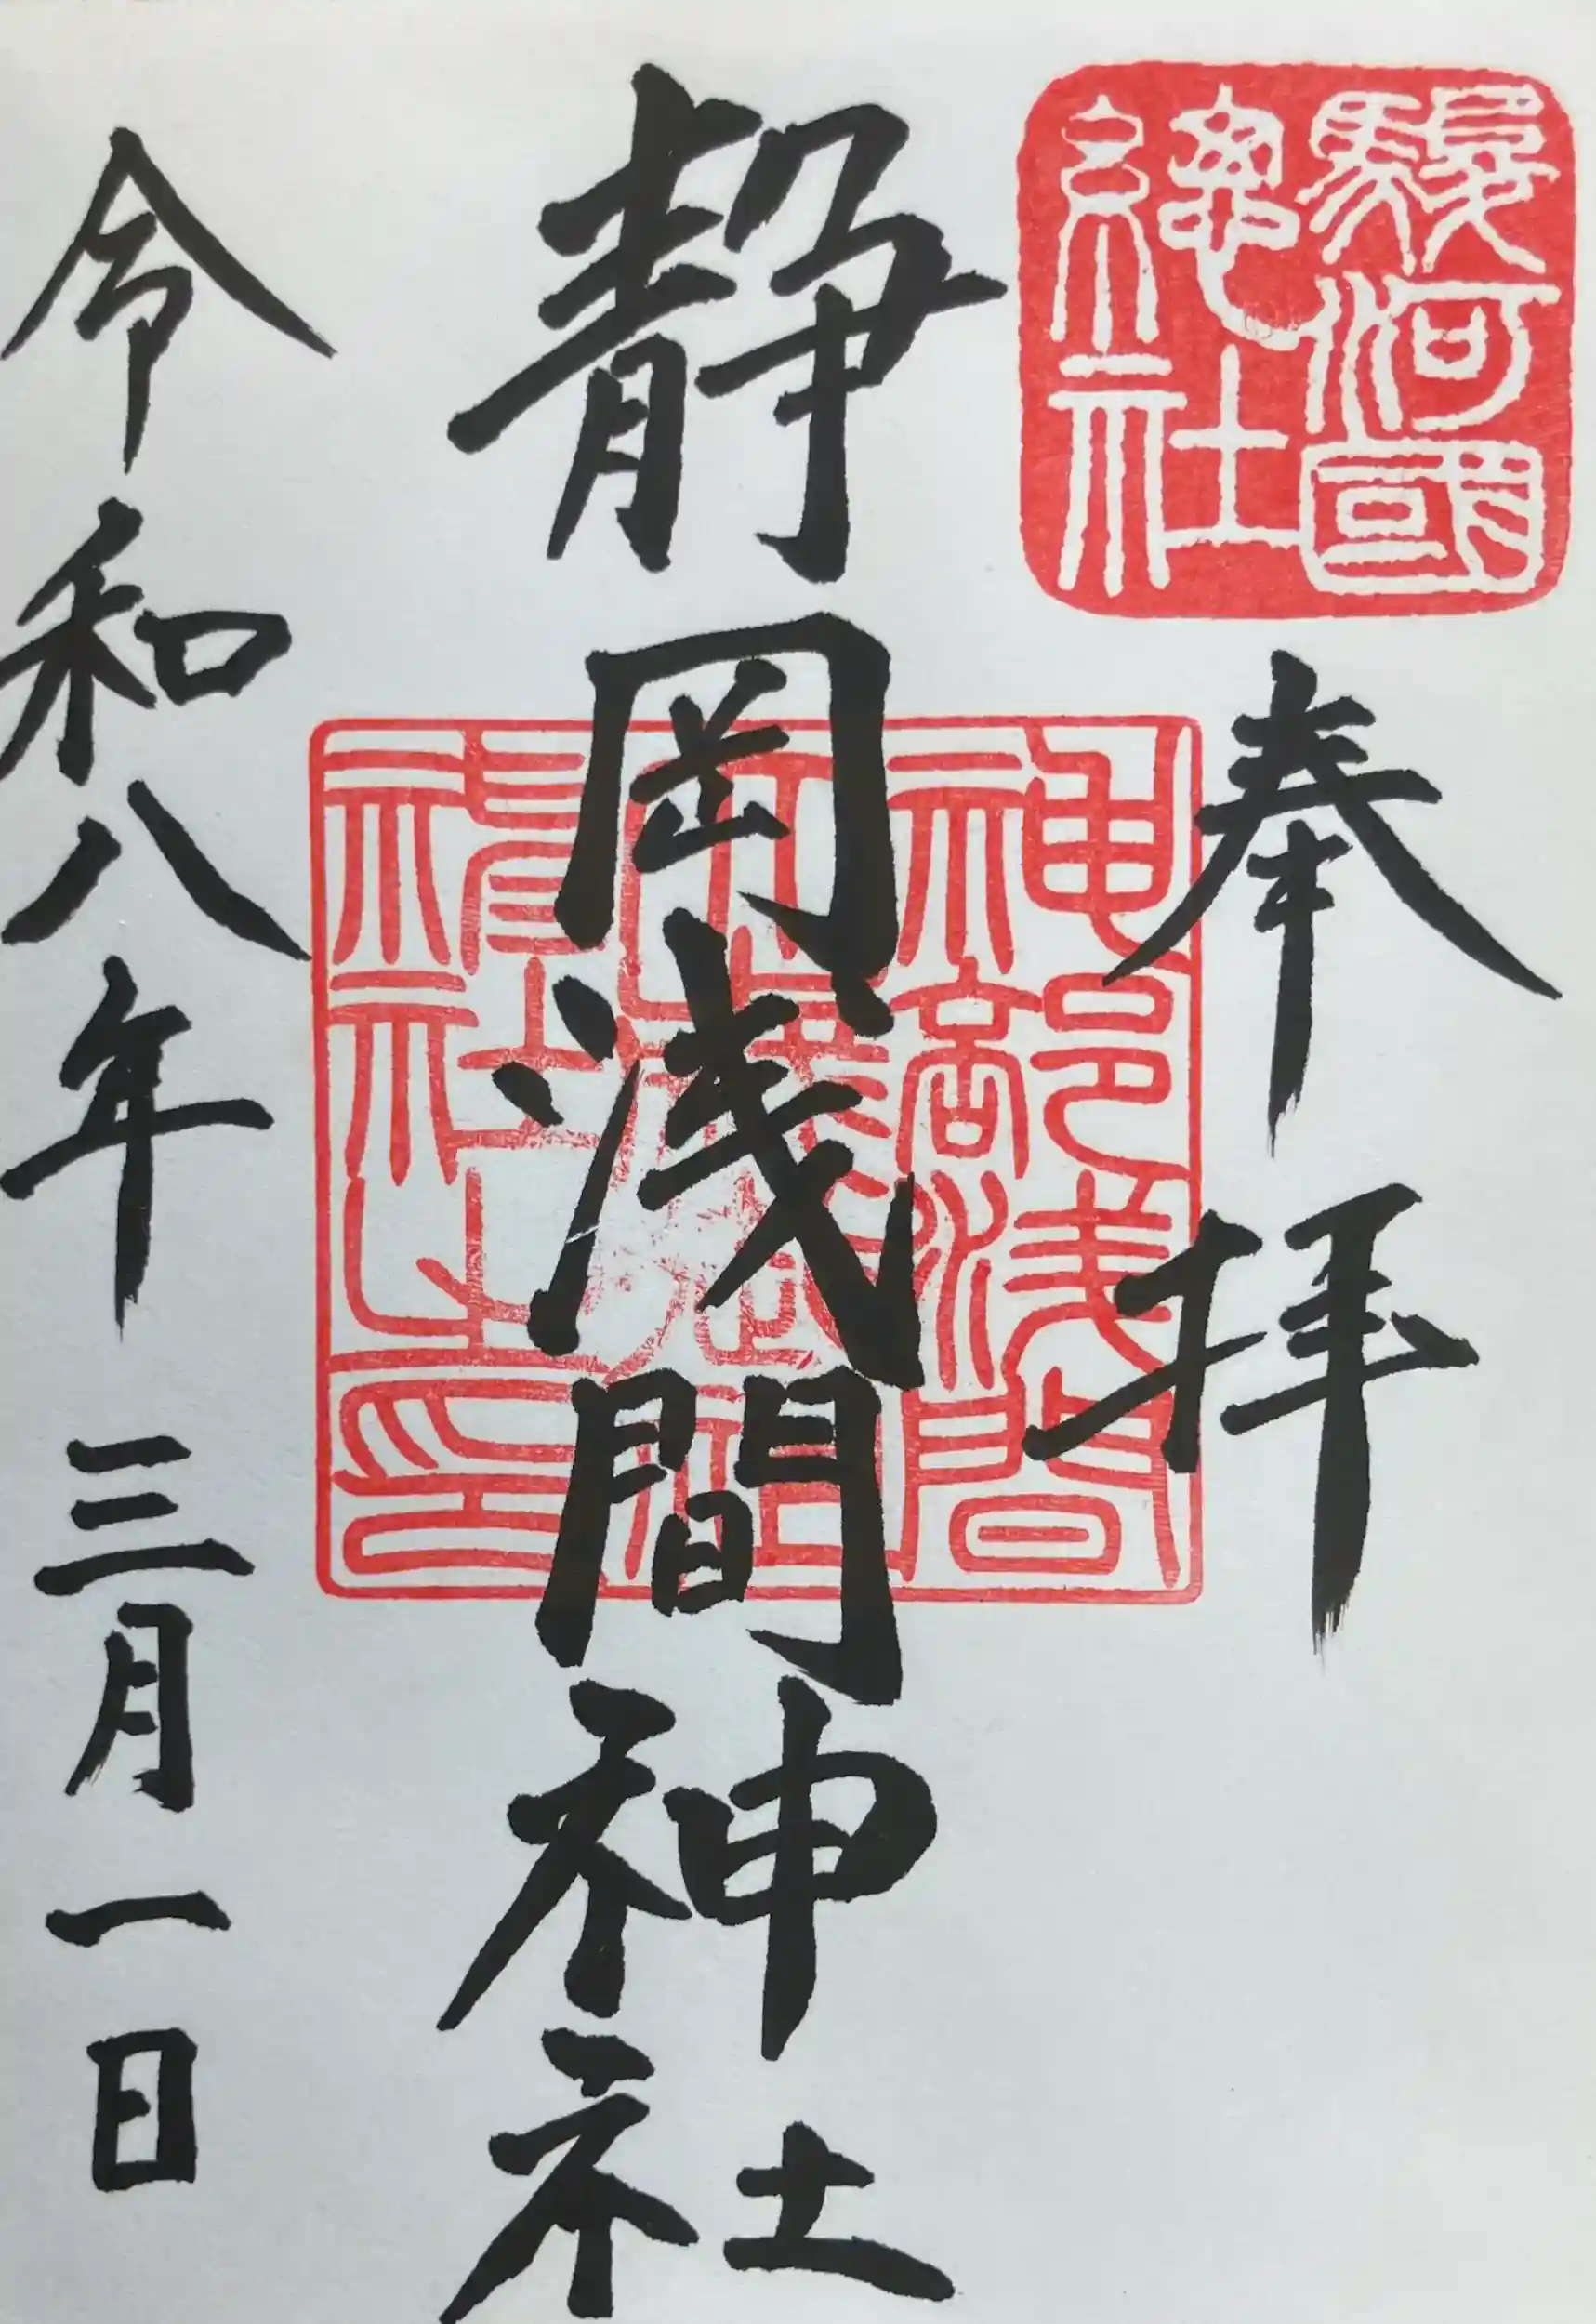 駿河國
總社
奉拝
静岡浅間神社
神部浅間
社之印
令和八年三月一日